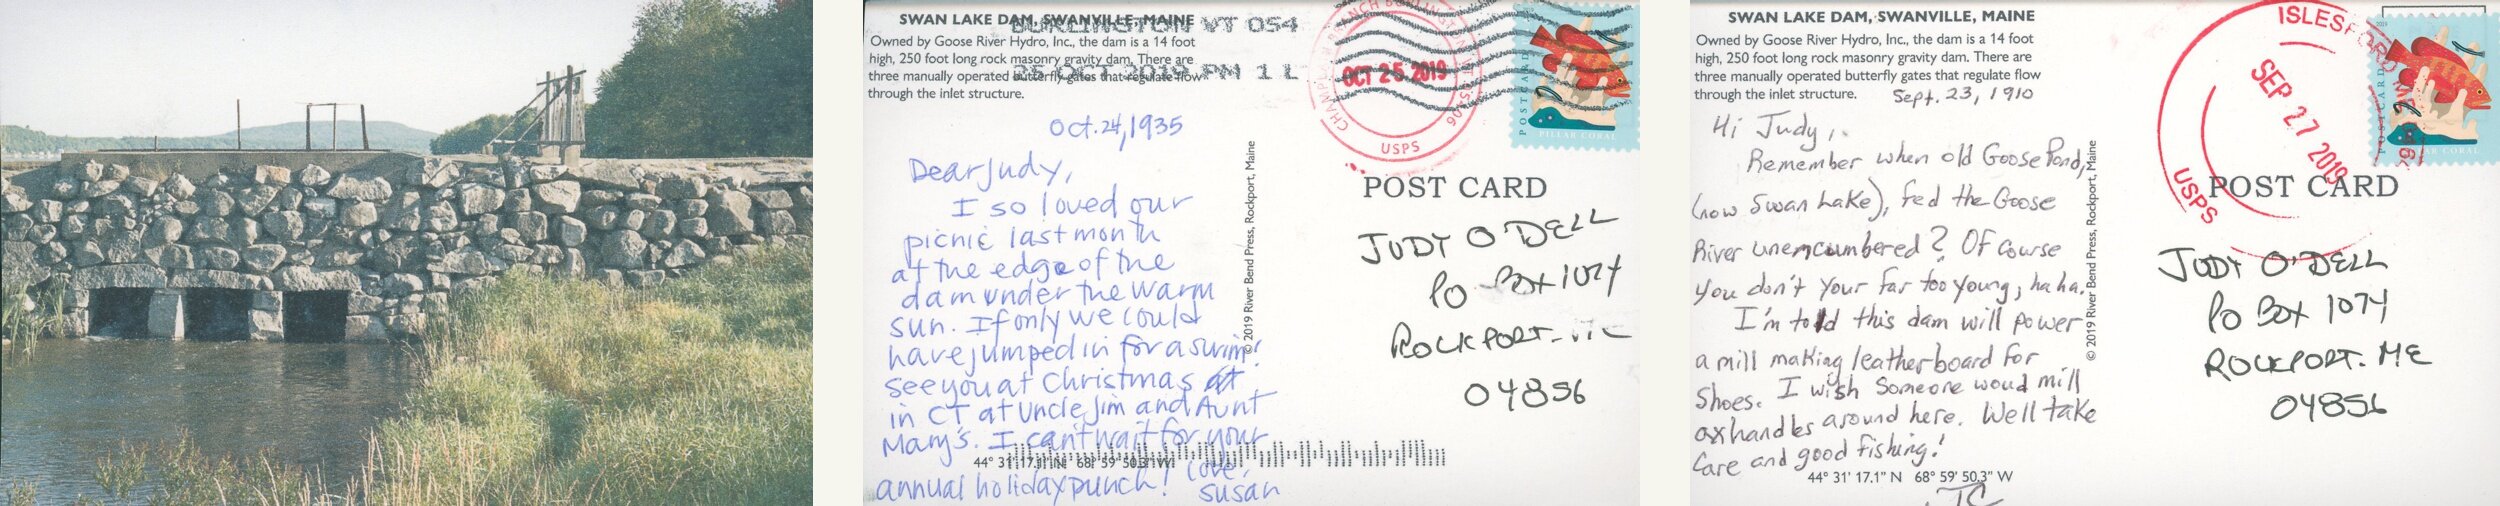 SWAN LAKE DAM, SWANVILLE, MAINE
Owned by Goose River Hydro, Inc., the dam is a 14 foot
high, 250 foot long rock masonry gravity dam. There are
three manually operated butterfly gates that regulate flow
through the inlet structure.
BURLINGTON VT 054
25 OCT 2019 PM 1 L
OCT 25 2019
USPS
POSTCARD
PILLAR CORAL
Oct. 24, 1935
Dear Judy,
I so loved our
picnic last month
at the edge of the
dam under the warm
sun. If only we could
have jumped in for a swim!
See you at Christmas
in CT at Uncle Jim and Aunt
Mary's. I can't wait for your
annual holiday punch! Love,
Susan
44° 31' 17.1" N 68° 59' 50.3" W
© 2019 River Bend Press, Rockport, Maine
POST CARD
JUDY O'DELL
PO BOX 1074
ROCKPORT.
04856
SWAN LAKE DAM, SWANVILLE, MAINE
Owned by Goose River Hydro, Inc., the dam is a 14 foot
high, 250 foot long rock masonry gravity dam. There are
three manually operated butterfly gates that regulate flow
through the inlet structure.
Sept. 23, 1910
Hi Judy,
Remember when old Goose Pond,
(now Swan Lake), fed the Goose
River unemcumbered? Of course
you don't your far too young, ha ha.
I'm told this dam will power
a mill making leatherboard for
Shoes. I wish Someone woud mill
axhandles around here. Well take
care and good fishing!
JC
44° 31' 17.1" N 68° 59' 50.3" W
© 2019 River Bend Press, Rockport, Maine
SEP 27 2019
USPS
POSTCARD
PILLAR CORAL
POST CARD
JUDY O'DELL
PO BOX 1074
ROCKPORT. ME
04856